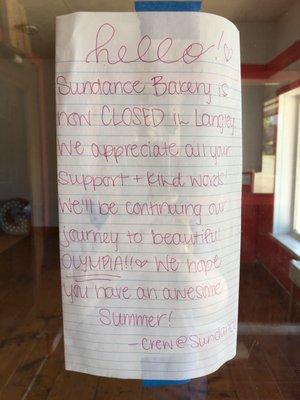 hello! ♡
Sundance Bakery is
now CLOSED in Langley.
We appreciate all your
support + kind words!
We'll be continuing our
journey to beautiful
OLYMPIA!!♡ We hope
you have an awesome
Summer!
- Crew @ Sundance